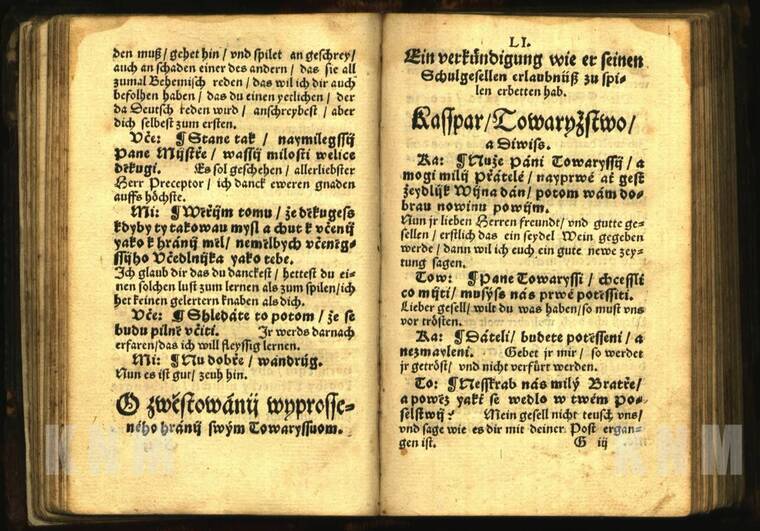 den muß/ gehet hin/ vnd spilet an geschrey/
auch an schaden einer des andern/ das sie all
zumal Behemisch reden/ das wil ich dir auch
befolhen haben/ das du einen yeclichen/ der
da Deutsch reden wird/ anschreybest/ aber
dich selbest zum ersten.
Vče: ¶ Stane tak/ naymilegssij
Pane Mijstře/ wassij milosti welice
děkugi. Es sol geschehen/ allerliebster
Herr Preceptor/ ich danck eweren gnaden
auffs höchste.
Mi: ¶ Wěřijm tomu/ že děkugess
kdyby ty takowau mysl a chut k včenij
yako k hránij měl/ neměl bych včeněg-
ssijho Včedlnijka yako tebe.
Ich glaub dir das du danckest/ hettest du ei-
nen solchen lust zum lernen als zum spilen/ ich
het keinen gelertern knaben als dich.
Vče: ¶ Shledáte to potom/ že se
budu pilně včiti. Ir werds darnach
erfaren/ das ich will fleyssig lernen.
Mi: ¶ Nu dobře/ wandrůg.
Nun es ist gut/ zeuh hin.
O zwěstowánij wyprosse-
ného hránij swým Towaryssuom.
LI.
Ein verkündigung wie er seinen
Schulgesellen erlaubnüß zu spi-
len erbetten hab.
Kasspar/ Towaryžstwo/
a Diwiss.
Ka: ¶ Nuže páni Towaryssij/ a
mogi milij Přátelé/ nayprwé ať gest
žeydlijk Wijna dán/ potom wám do-
brau nowinu powijm.
Nun jr lieben Herren freundt/ vnd gutte ge-
sellen/ erstlich das ein seydel Wein gegeben
werde/ dann wil ich euch ein gute newe zey-
tung sagen.
Tow: ¶ Pane Towaryssi/ chcessli
co mijti/ musýss nás prwé potěssiti.
Lieber gesell/ wilt du was haben/ so must vns
vor trösten.
Ka: ¶ Dáteli/ budete potěsseni/ a
nezmayleni. Gebet jr mir/ so werdet
jr getröst/ vnd nicht verfürt werden.
To: ¶ Nesskrab nás milý Bratře/
a pověz yakť se wedlo w twém po-
selstwij? Mein gesell nicht teusch vns/
vnd sage wie es dir mit deiner Post ergan-
gen ist. G iij
KNM
KNM